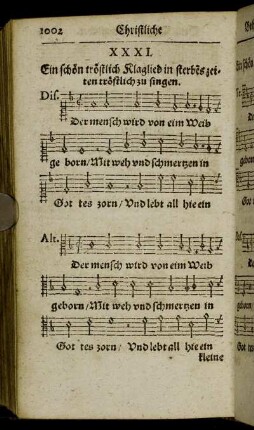 1002 Christliche
XXXI.
Ein schön tröstlich Klaglied in sterbēs zei-
ten tröstlich zu singen.
Dis.
Der mensch wird von eim Weib
ge born/Mit weh vnd schmertzen in
Got tes zorn/ Vnd lebt all hie ein
Alt.
Der mensch wird von eim Weib
geborn/Mit weh vnd schmertzen in
Got tes zorn/ Vnd lebt all hie ein
kleine